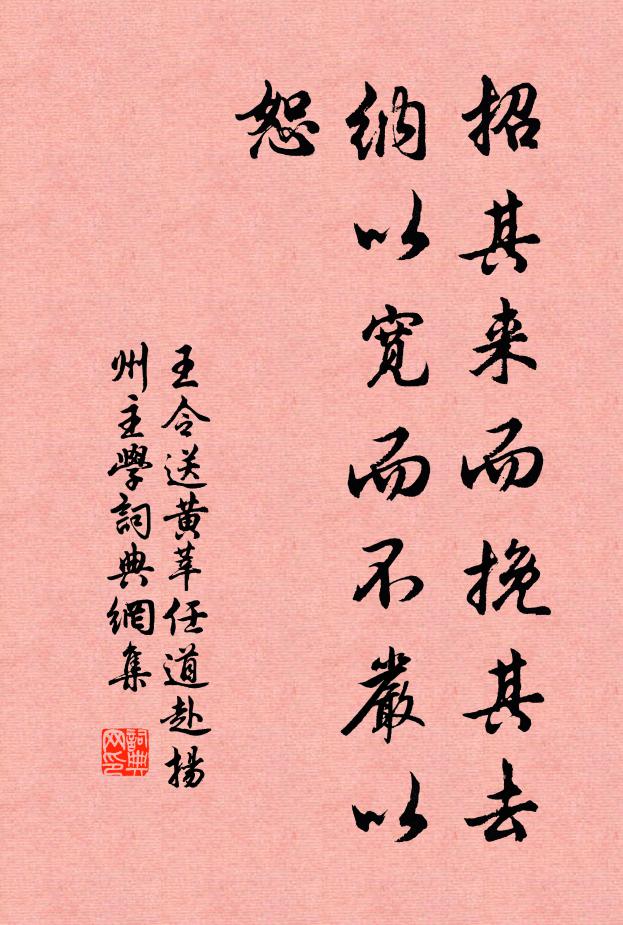 招其来而挽其去
纳以宽而不嚴以
恕
王令送黄莘任道赴揚
州主學詞典網集
詞典
网印